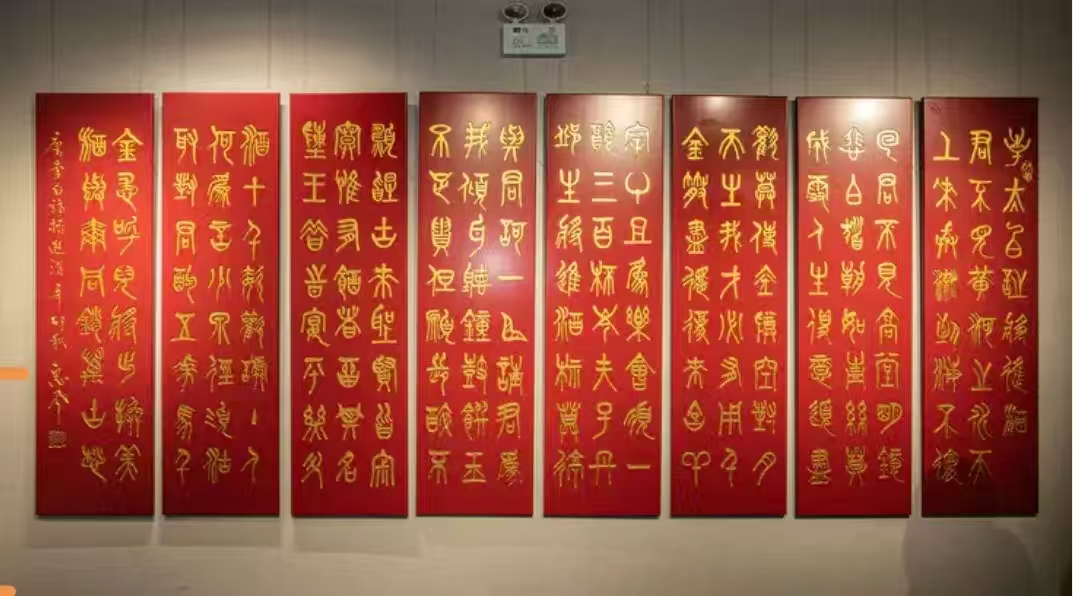 李太白將進酒
君不見黃河之水天
上來奔流到海不復
回君不見高堂明鏡
悲白髮朝如青絲莫
成雪人生得意須盡
歡莫使金樽空對月
天生我才必有用千
金散盡還復來烹羊
宰牛且為樂會須一
飲三百杯岑夫子丹
邱生將進酒杯莫停
與君歌一曲請君為
我傾耳聽鐘鼓饌玉
不足貴但願長醉不
願醒古來聖賢皆寂
寞惟有飲者留其名
陳王昔時宴平樂斗
酒十千恣歡謔主人
何為言少錢徑須沽
取對君酌五花馬千
金裘呼兒將出換美
酒與爾同銷萬古愁
唐李白詩將進酒